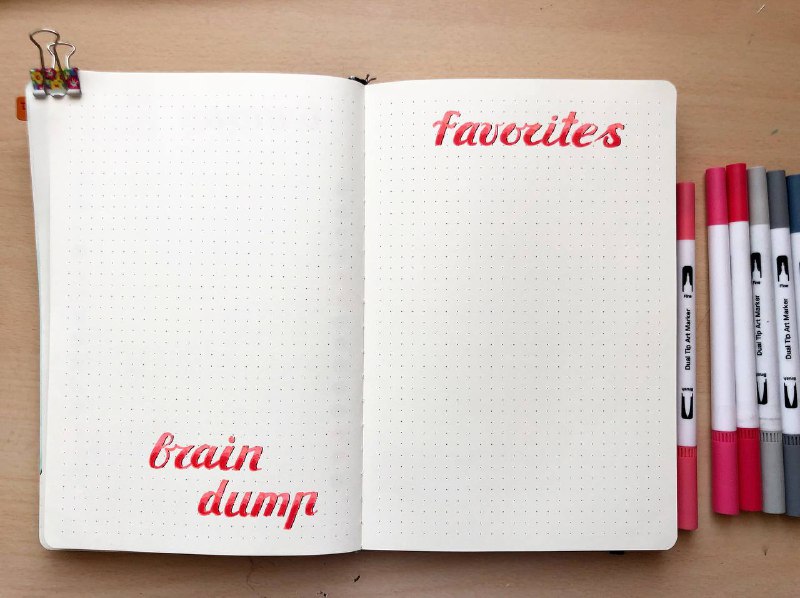 favorites
brain
dump
Fine
Dual Tip Art Marker
Brush
Dual Tip Art Marker
Brush
Fine
Dual Tip Art Marker